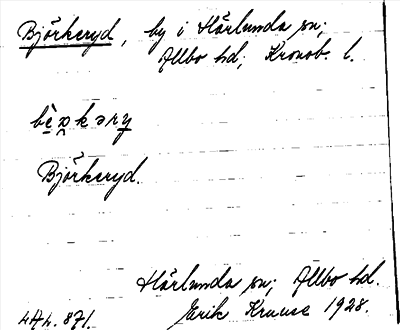 Björkeryd, by i Härlunda sn;
Allbo hd; Kronob. l.
Björkeryd.
Härlunda sn; Allbo hd.
Erik Kruuse 1928.